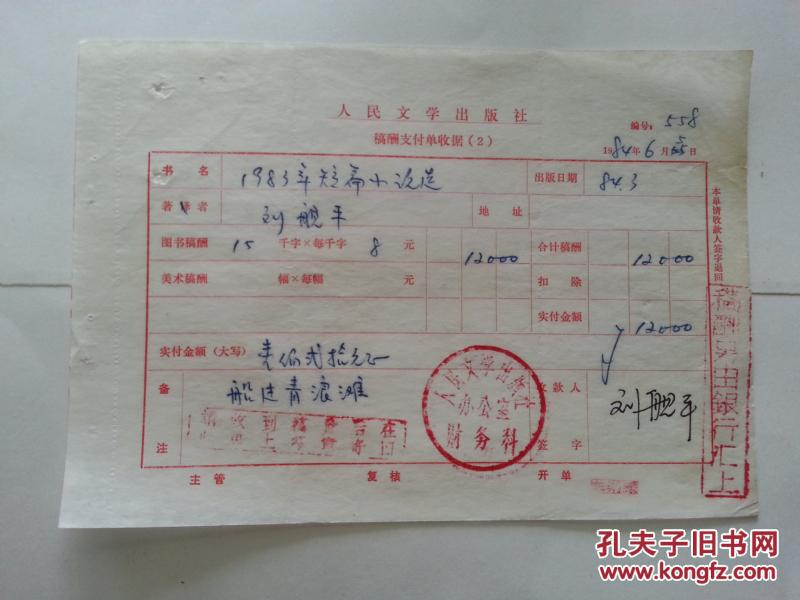 人民文学出版社
编号: 558
稿酬支付单收据(2)
1984年6月 日
书名 1983年短篇小说选 出版日期 84.3
著译者 刘舰平 地址
图书稿酬 15 千字×每千字 8 元 12000 合计稿酬 12000
美术稿酬 幅×每幅 元 扣除
实付金额 12000
实付金额(大写) 壹佰贰拾元正
备注 船过青浪滩
收款人签字 刘舰平
主管 复核 开单
本单请收款人签字退回
稿酬另由銀行汇上
人民文学出版社
办公室
财务科
孔夫子旧书网
www.kongfz.com